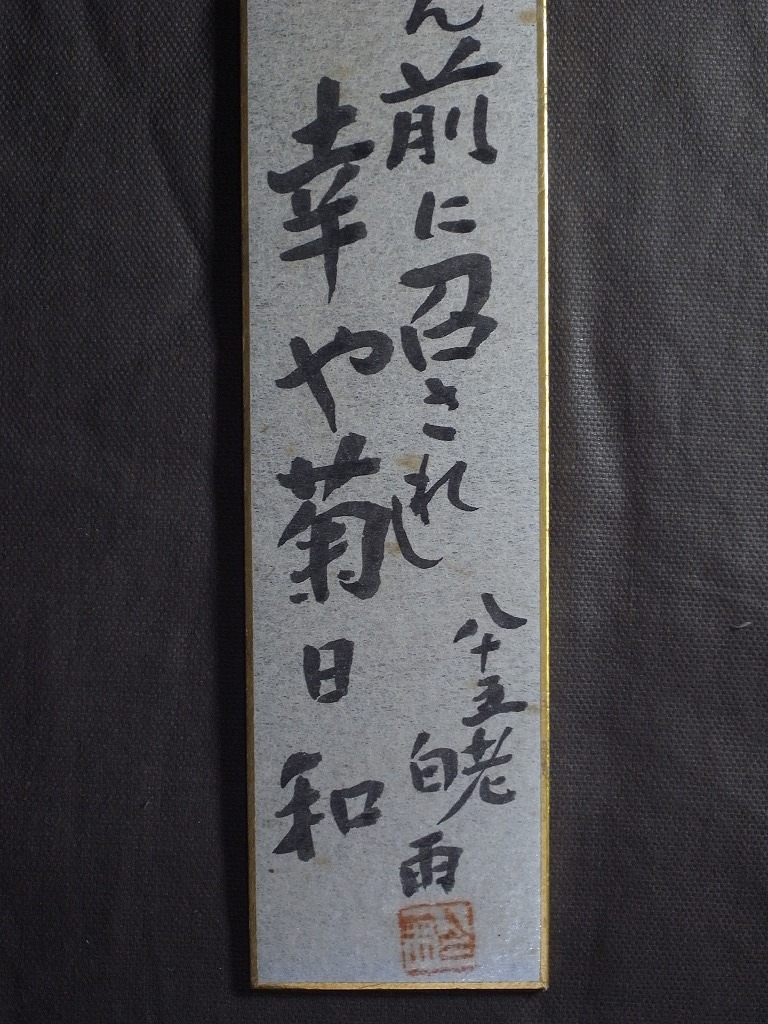 ん前に召されし
幸や菊日和
八十五老
白雨